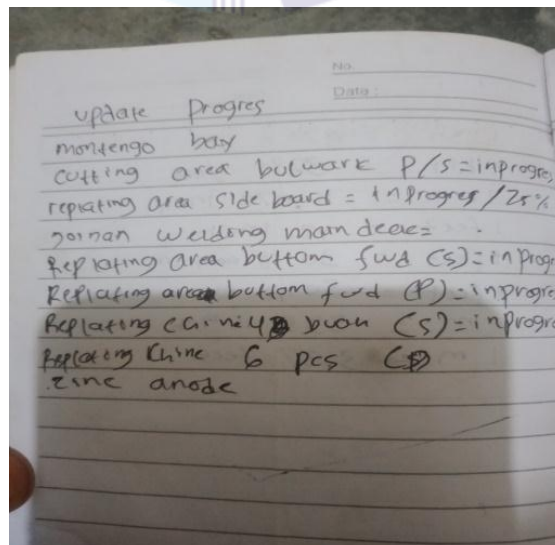 No.
Date:
update Progres
montengo bay
cutting area bulwark P/S = inprogres
replating area side board = inprogres / 25%
joinan welding main deac =
Replating area buttom fwd (S) = inprogr
Replating area buttom fwd (P) = inprogre
Replating chine 4 buah (S) = inprogre
Replating Chine 6 pcs (P)
zinc anode